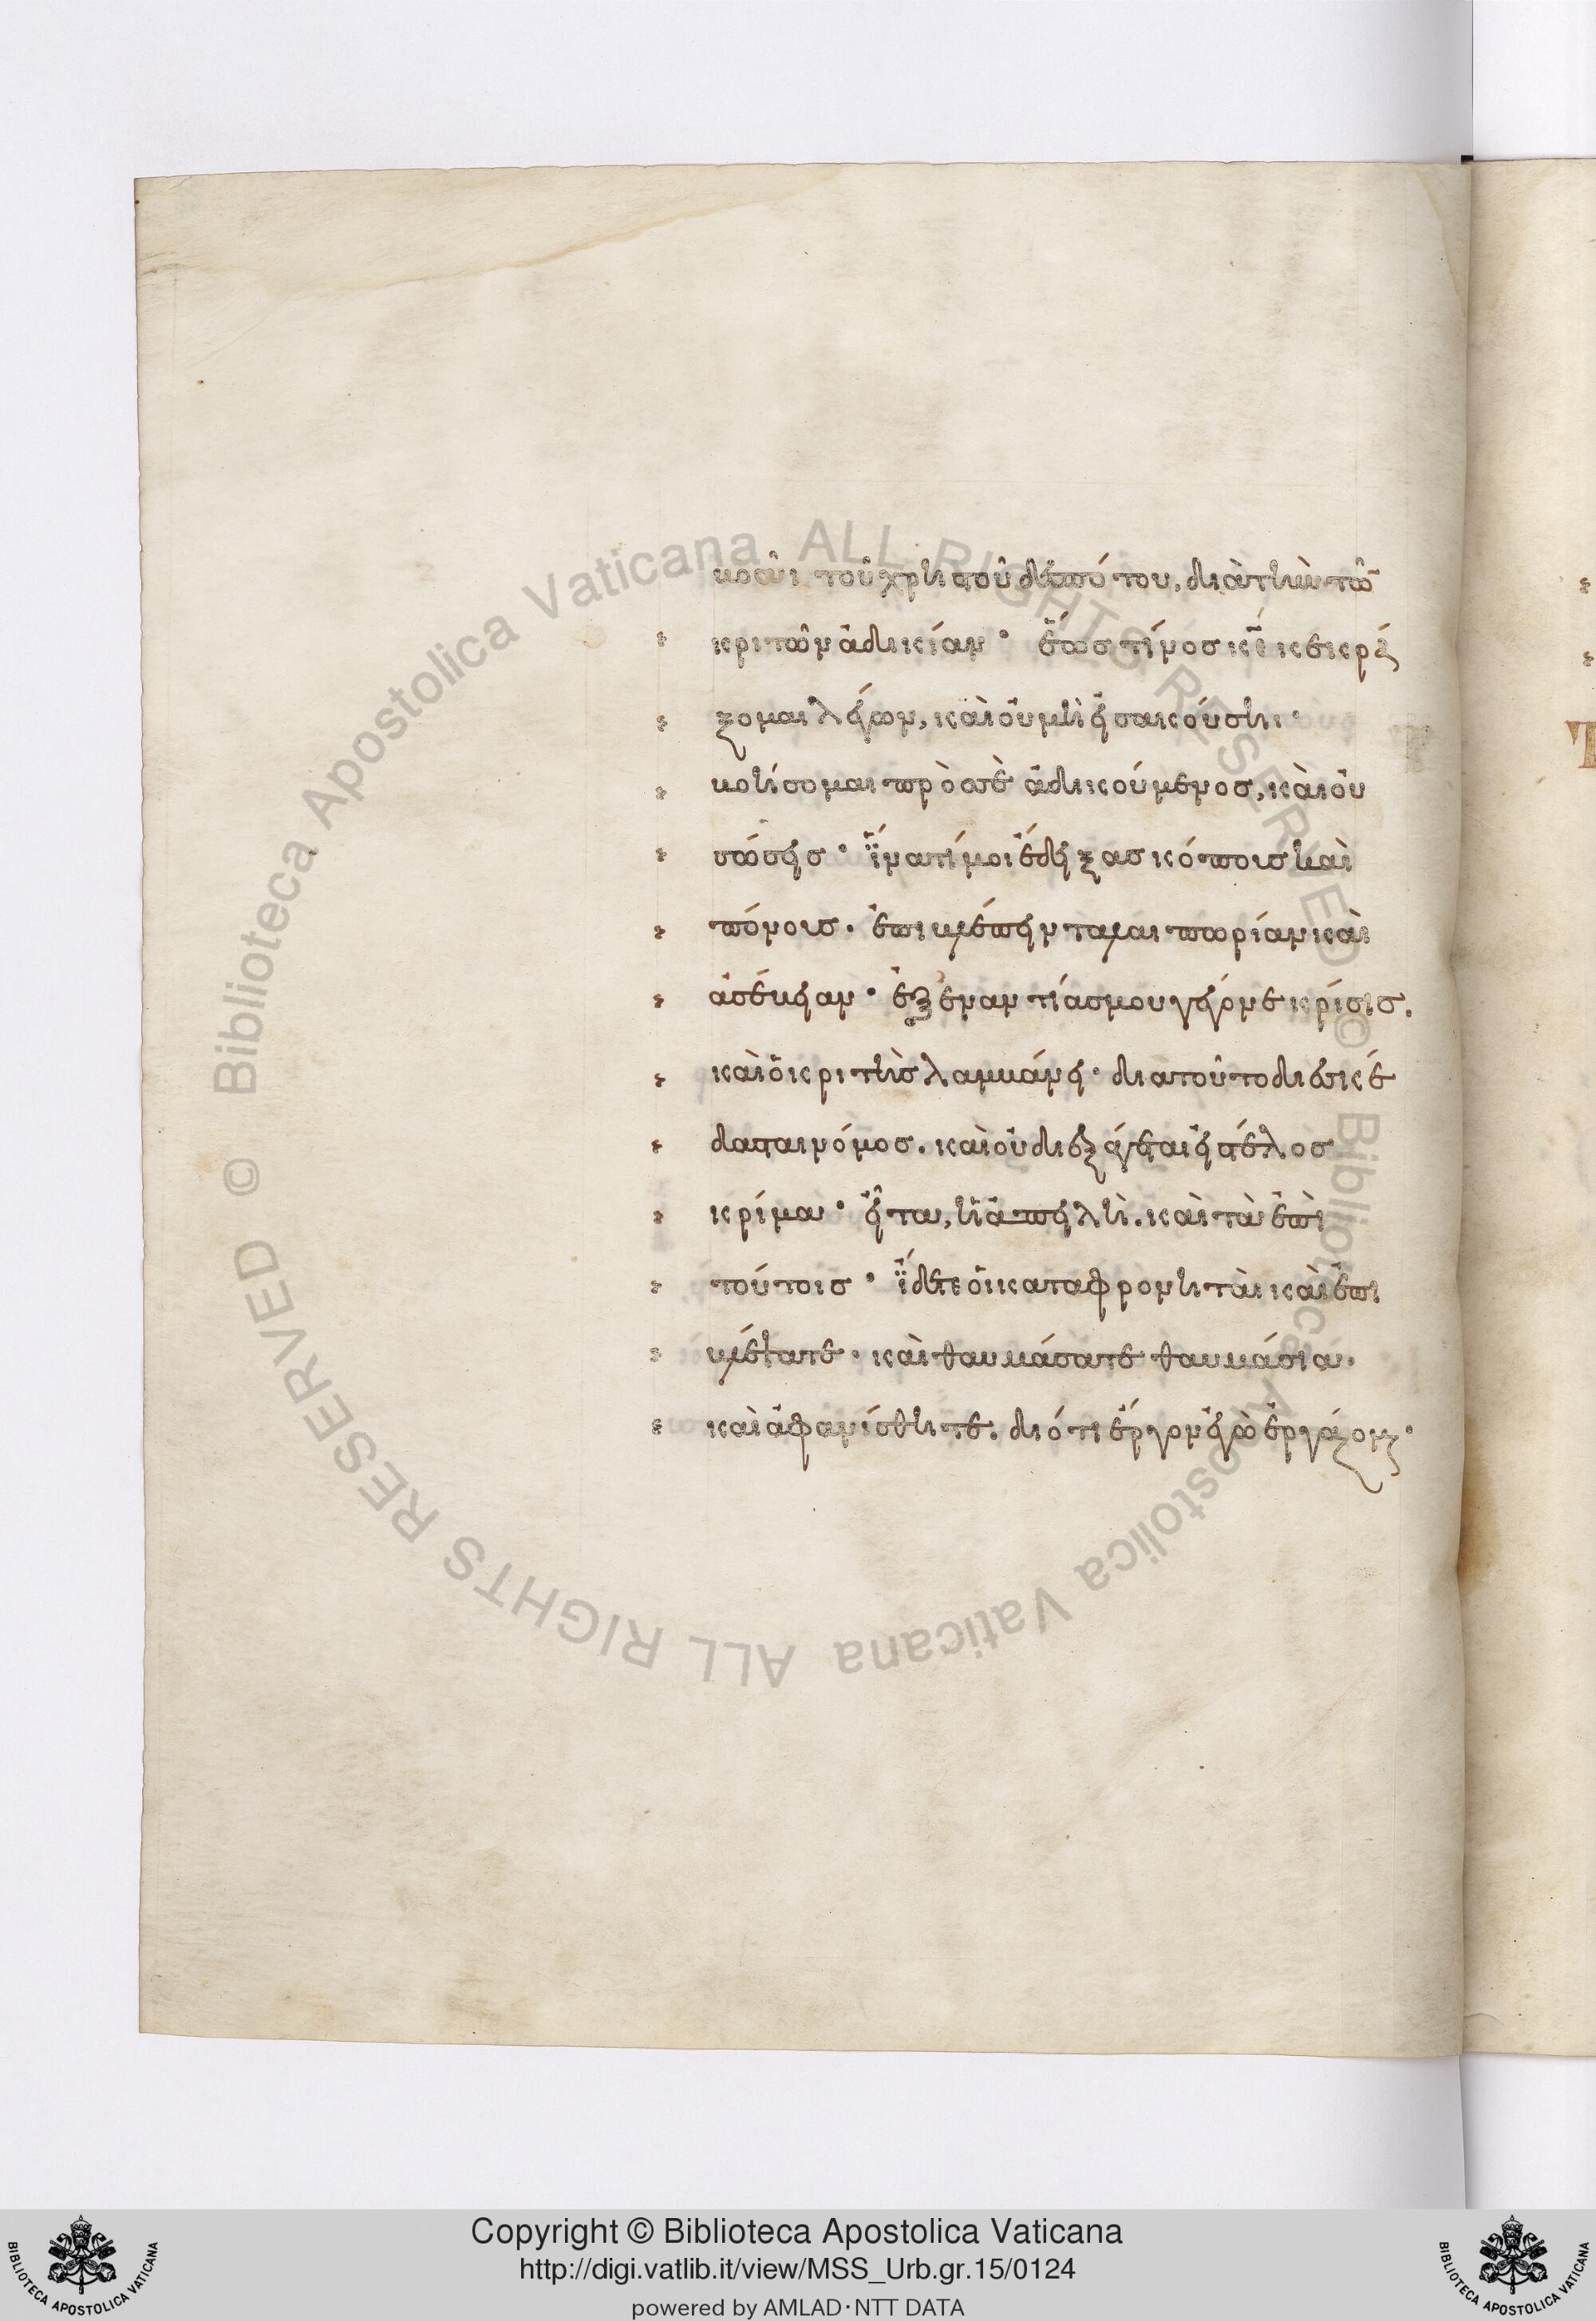 βοᾶι τοῦ χρηστοῦ δεσπότου, διὰ τὴν τῶ
κριτῶν ἀδικίαν· ἕως τίνος κε κεκρά
ξομαι λέγων, καὶ οὐ μὴ εἰσακούσηι·
βοήσομαι πρὸς σὲ ἀδικούμενος, καὶ οὐ
σώσεις· ἵνα τί μοι ἔδειξας κόπους καὶ
πόνους. ἐπιβλέπειν ταλαιπωρίαν καὶ
ἀσέβειαν· ἐξεναντίας μου γέγονε κρίσις.
καὶ ὁ κριτὴς λαμβάνει· διατοῦτο διεσκέ
δασται νόμος. καὶ οὐ διεξάγεται εἰς τέλος
κρίμα· εἶτα, ἡ ἀπειλὴ. καὶ τὰ ἐπὶ
τούτοις· ἴδετε οἱ καταφρονηταὶ καὶ ἐπι
βλέψατε· καὶ θαυμάσατε θαυμάσια.
καὶ ἀφανίσθητε. διότι ἔργον ἐγὼ ἐργάζομαι·
Copyright © Biblioteca Apostolica Vaticana
http://digi.vatlib.it/view/MSS_Urb.gr.15/0124
powered by AMLAD·NTT DATA
BIBLIOTECA APOSTOLICA VATICANA
BIBLIOTECA APOSTOLICA VATICANA
© Biblioteca Apostolica Vaticana ALL RIGHTS RESERVED © Biblioteca Apostolica Vaticana ALL RIGHTS RESERVED